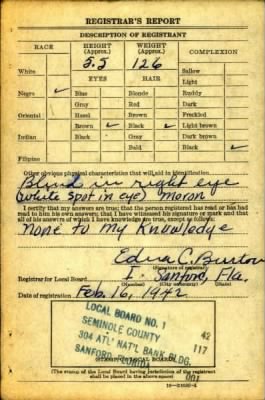 REGISTRAR'S REPORT
DESCRIPTION OF REGISTRANT
RACE HEIGHT (Approx.) WEIGHT (Approx.) COMPLEXION
5.5 126
White Sallow
EYES HAIR Light
Negro ✓ Blue Blonde Ruddy
Gray Red Dark
Oriental Hazel Brown Freckled
Brown ✓ Black ✓ Light brown
Indian Black Gray Dark brown
Bald Black ✓
Filipino
Other obvious physical characteristics that will aid in identification
Blind in right eye
(white spot in eye) moron
I certify that my answers are true; that the person registered has read or has had
read to him his own answers; that I have witnessed his signature or mark and that
all of his answers of which I have knowledge are true, except as follows:
None to my Knowledge
Edna C. Burton
(Signature of registrar)
Registrar for Local Board 1 Sanford, Fla.
(Number) (City or county) (State)
Date of registration Feb. 16, 1942
LOCAL BOARD NO. 1
SEMINOLE COUNTY 42
304 ATL' NAT'L BANK BLDG. 117
SANFORD, FLORIDA
(The stamp of the Local Board having jurisdiction of the registrant
shall be placed in the above space)
001